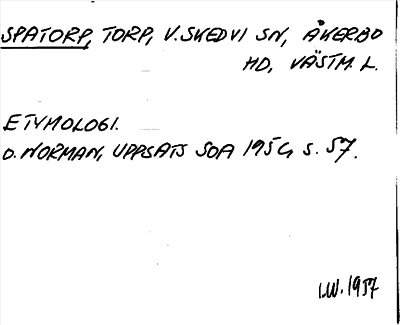 SPATORP, TORP, V. SKEDVI SN, ÅKERBO
HD, VÄSTM. L.
ETYMOLOGI.
O. NORMAN, UPPSATS SOA 1954, S. 57.
I.W. 1957